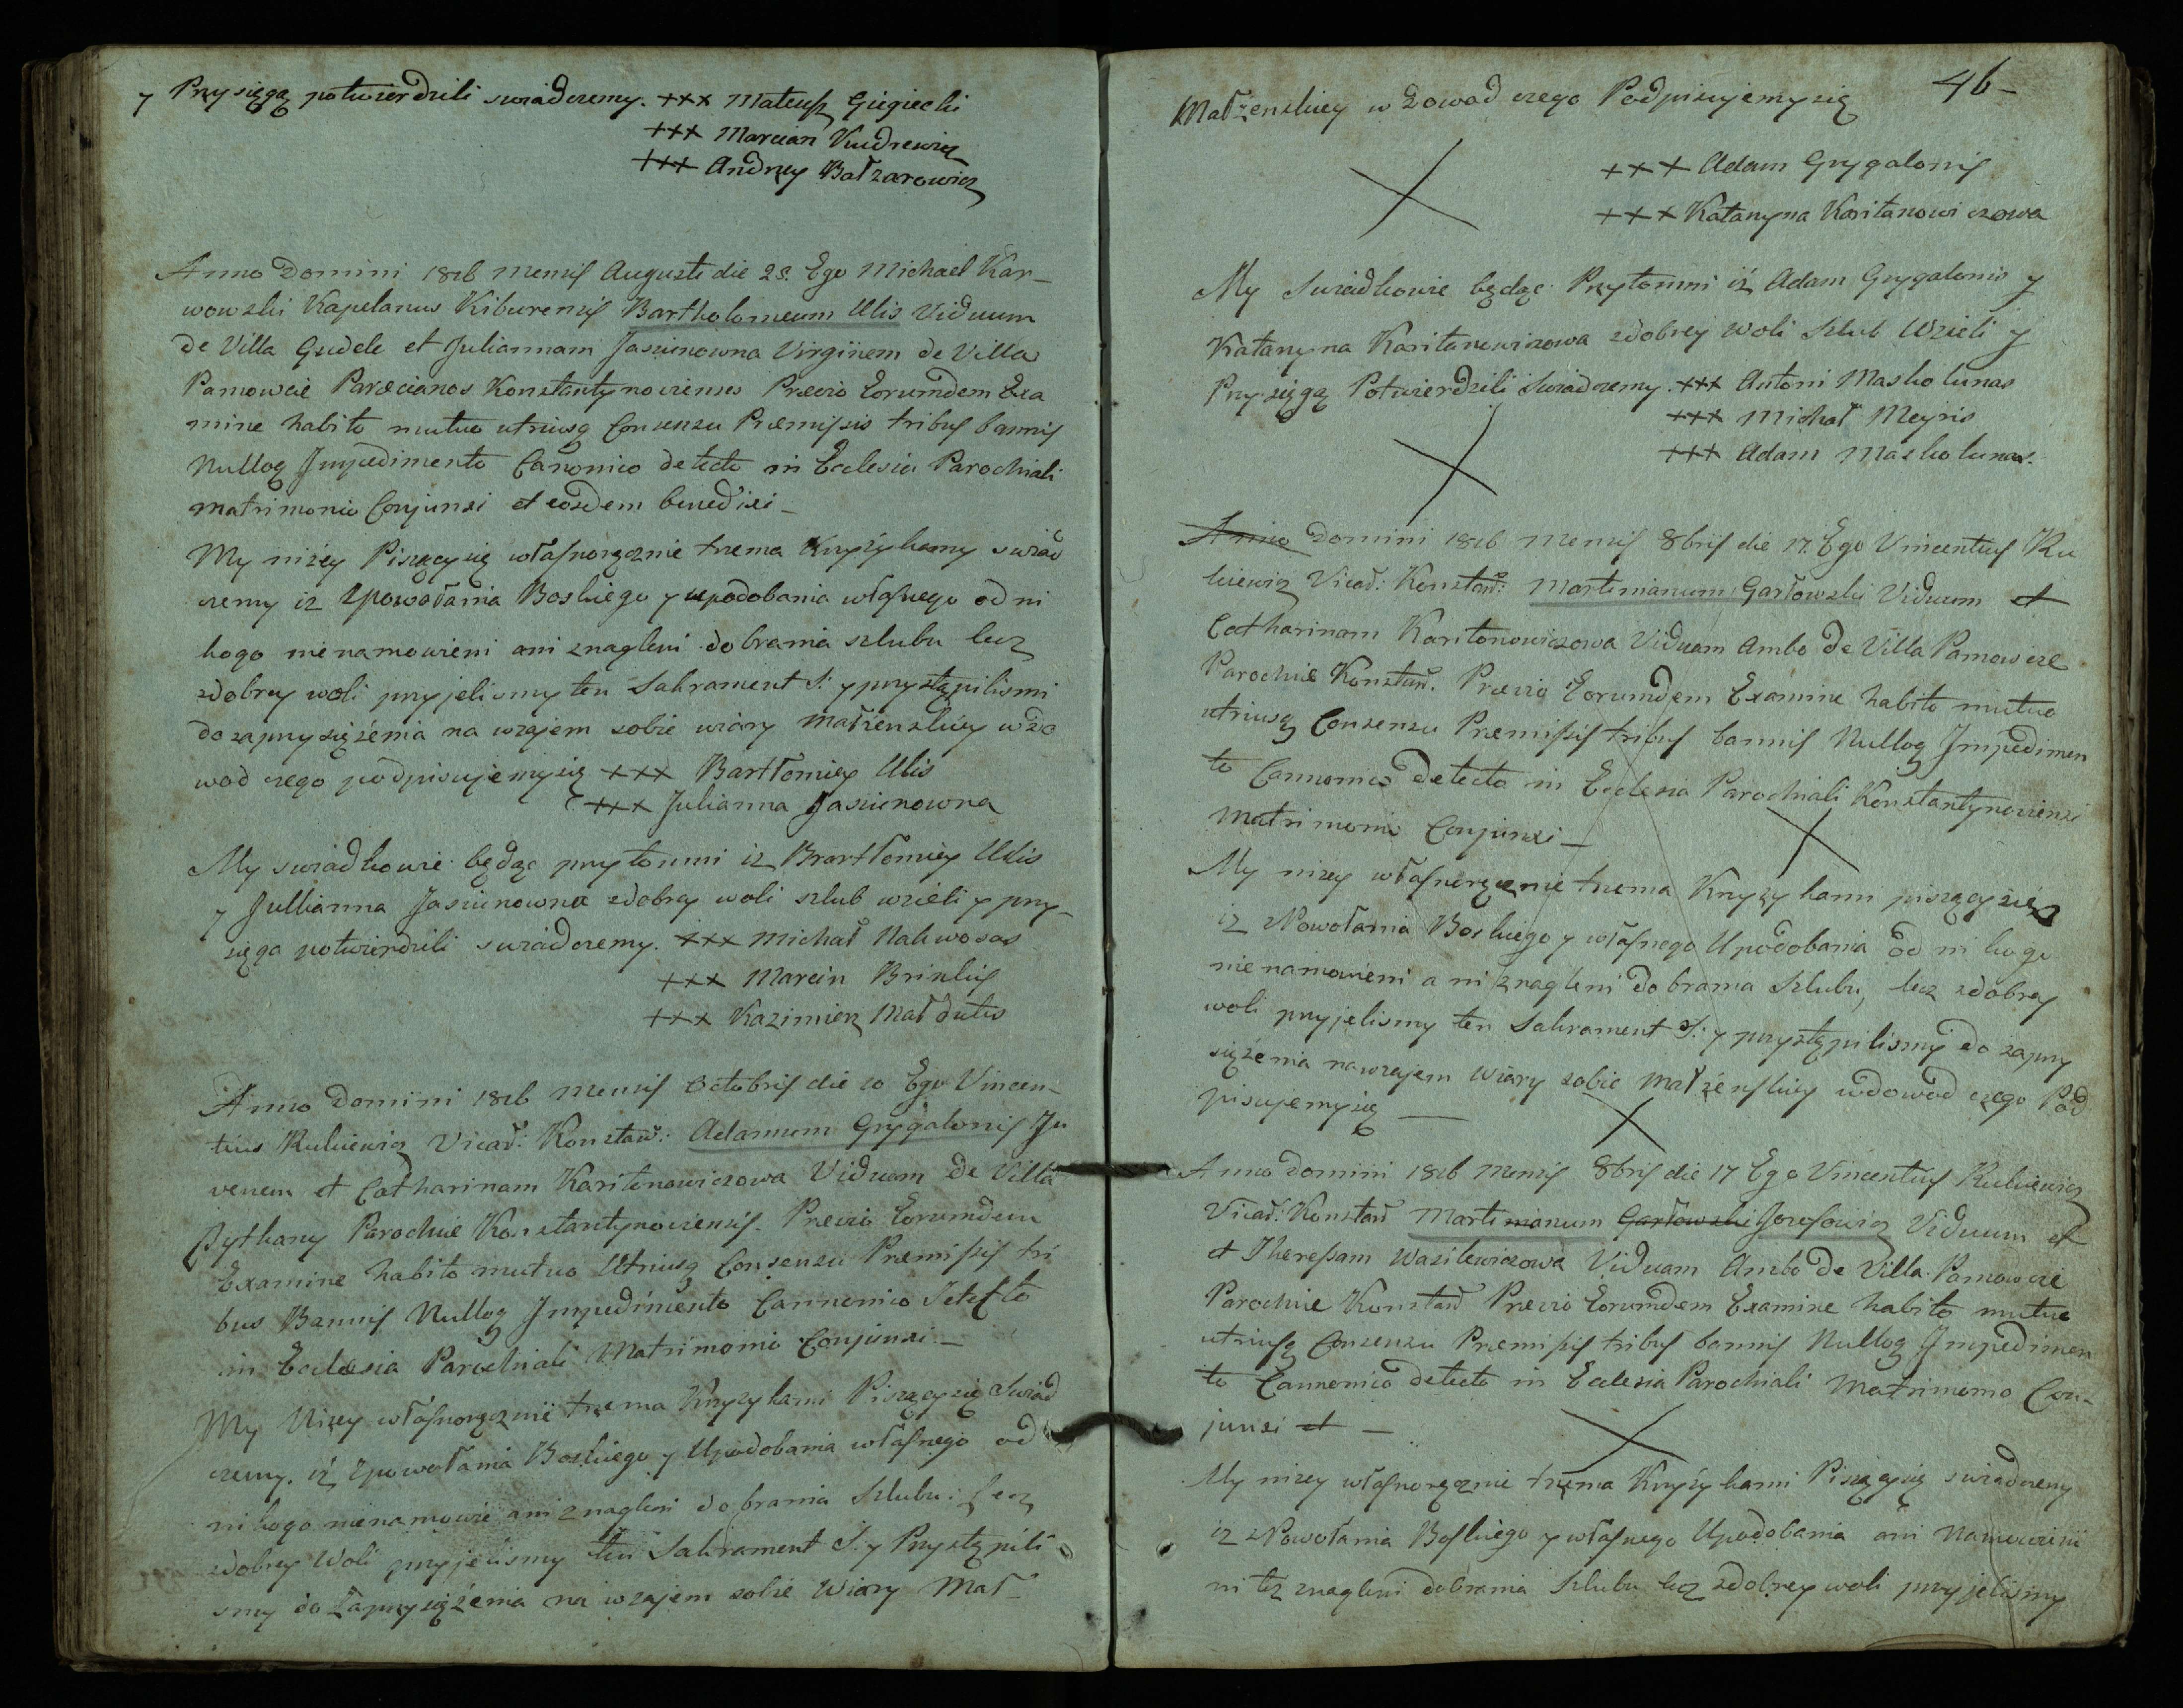 y Przysięgą potwierdzili swiadczemy. +++ Mateusz Giegiecki
+++ Marcian Kudrewicz
+++ Andrzey Bałzarowicz
Anno Domini 1816 Mensis Augusti die 28. Ego Michael Kar-
wowski Kapelanus Kiburensis Bartholomeum Ulis Viduum
de Villa Gudele et Juliannam Jasiunowna Virginem de Villa
Pamowcie Parœcianos Konstantynovienses Prævio Eorumdem Exa
mine habito mutuo utriusq Consensu Præmissis tribus bannis
Nulloq Impedimento Canonico detecto in Ecclesia Parochiali
matrimonio Conjunxi et eosdem benedixi _
My niżey Piszący się własnoręcznie trzema Krzyżykamy swiad
czemy iz zpowołania Boskiego y upodobania własnego od ni
kogo nienamowieni ani znagleni do brania szlubu lecz
zdobrey woli przyjelismy ten Sakrament S: y przystąpilismi
do zaprzysiężenia na wzajem sobie wiary małżenskiey w do
wod czego podpisujemy się +++ Bartłomiey Ulis
+++ Julianna Jasiunowna
My swiadkowie będąc przytomni iz Brartłomiey Ulis
y Jullianna Jasiunowna zdobrey woli szlub wzieli y przy-
sięga potwirdzili swiadczemy. +++ Michał Nakwosas
+++ Marcin Brinkis
+++ Kazimierz Małdutis
Anno Domini 1816 Mensis Octobris die 10 Ego Vincen-
tius Rukiewicz Vicař: Konstaň: Adamum Grygalonis Ju
venem et Catharinam Karitonowiczowa Viduam de Villa
Pythany Parochiæ Konstantynoviensis. Prævio Eorumdem
Examine habito mutuo Utriusq Consensu Præmissis tri
bus Bannis Nulloq Impedimento Cannonico Detecto
in Ecclesia Parochiali Matrimonio Conjunxi _
My Niżey własnoręcznie trzema Krzyżykami Piszący się Swiad
czemy. iż zpowołania Boskiego y Upodobania własnego od
nikogo nienamowie ani znagleni do brania Szlubu: lecz
zdobrey Woli przyjelismy ten Sakrament S. y Przystąpili
smy do Zaprzysiężenia na wzajem sobie Wiary Mał-
46-
Małżenskiey w Dowod czego Podpisujemy się
+++ Adam Grygalonis
+++ Katarzyna Karitanowiczowa
My Swiadkowie będąc Przytomni iż Adam Grygalonis y
Katarzyna Karitanowiczowa zdobrey woli Szlub Wzieli y
Przysięgą Potwierdzili Swiadczemy. +++ Antoni Maskolunas
+++ Michał Meyris
+++ Adam Maskolunas.
Anno Domini 1816 Mensis 8bris die 17. Ego Vincentius Ru
kiewicz Vicař: Konstaň: Martinianum Garłowski Viduum et
Catharinam Karitonowiczowa Viduam Ambo De Villa Pamowcie
Parochiæ Konstaň. Prævio Eorumdem Examine habito mutuo
utriusq Consensu Præmissis tribus bannis Nulloq Impedimen
to Cannonico Detecto in Ecclesia Parochiali Konstantynoviensi
Matrimonio Conjunxi _
My niżey własnoręcznie trzema Krzyżykami piszący się
iz zPowołania Boskiego y własnego Upodobania od nikogo
nienamowieni ani znagleni do brania Szlubu, lecz zdobrey
woli przyjelismy ten Sakrament S: y przystąpilismy do zaprzy
siężenia nawzajem wiary sobie Małżenskiey wdowod czego Pod
pisujemy się _
Anno Domini 1816 Mensis 8bris die 17 Ego Vincentius Rukiewicz
Vicař: Konstaň Martinianum Garłowski Jozefowicz Viduum et
et Theressam Wazilewiczowa Viduam Ambo De Villa Pamowcie
Parochiæ Konstaň Prævio Eorumdem Examine habito mutuo
utriusq Consensu Præmissis tribus bannis Nulloq Impedimen
to Cannonico detecto in Ecclesia Parochiali Matrimonio Con-
junxi et _
My niżey własnoręcznie trzema Krzyżykami Piszący się swiadczemy
iz zPowołania Boskiego y własnego Upodobania ani Namowieni
ni tez znagleni dobrania Szlubu lecz zdobrey woli przyjelismy